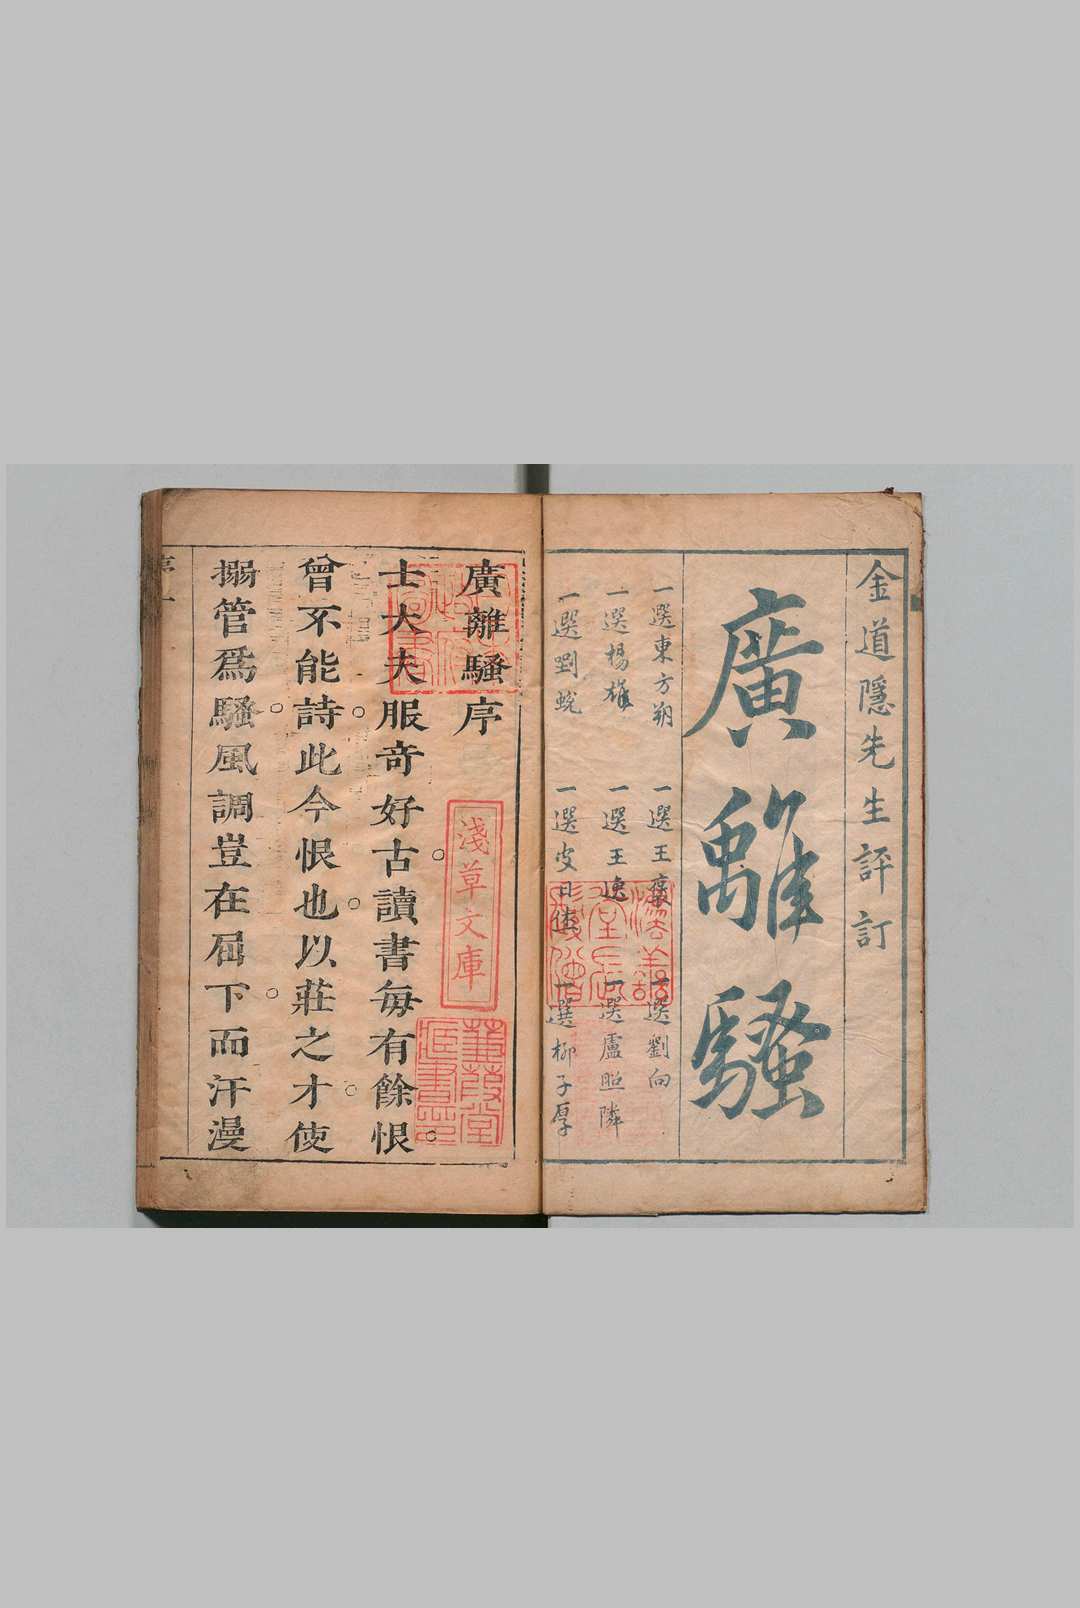 金道隱先生評訂
廣離騷
一選東方朔 一選王褒 一選劉向
一選楊雄 一選王逸 一選盧照隣
一選劉蛻 一選皮日休 一選柳子厚
廣離騷序
士大夫服奇好古讀書每有餘恨
曾不能詩此今恨也以莊之才使
搦管爲騷風調豈在屈下而汗漫
序 一
淺草文庫
蒹葭堂藏書印